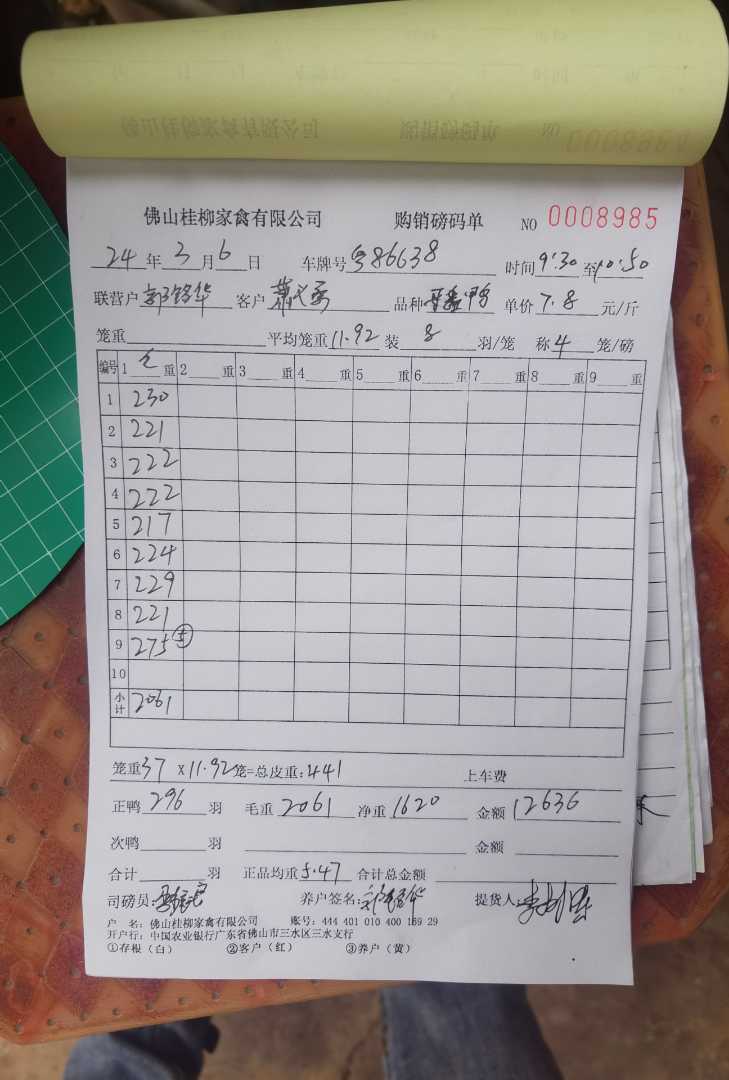 佛山桂柳家禽有限公司 购销磅码单 NO 0008985
24 年 3 月 6 日 车牌号 粤86638 时间 9:30 至 10:50
联营户 邓铭华 客户 品种 鸭 单价 7.8 元/斤
笼重 平均笼重 11.92 装 8 羽/笼 称 4 笼/磅
编号 1 毛 重 2 重 3 重 4 重 5 重 6 重 7 重 8 重 9 重
1 230
2 221
3 222
4 222
5 217
6 224
7 229
8 221
9 275 ⑤
10
小计 2061
笼重 37 x 11.92 笼=总皮重: 441 上车费
正鸭 296 羽 毛重 2061 净重 1620 金额 12636
次鸭 羽 金额
合计 羽 正品均重 5.47 合计总金额
司磅员: 养户签名: 邓铭华 提货人
户 名: 佛山桂柳家禽有限公司 账号: 444 401 010 400 169 29
开户行: 中国农业银行广东省佛山市三水区三水支行
①存根(白) ②客户(红) ③养户(黄)